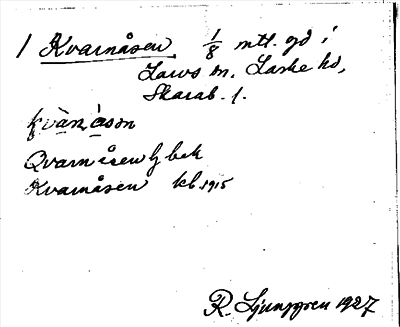 1 Kvarnåsen 1/8 mtl. gd i
Larvs sn, Laske hd,
Skarab. l.
kvàn, åsọn
Qvarnåsen Ljbek
Kvarnåsen kb 1915
R. Ljunggren 1927